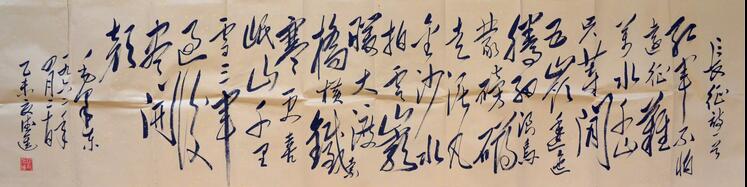 长征詩一首
紅軍不怕
遠征難
萬水千山
只等閒
五嶺逶迤
騰細浪烏
蒙磅礴
走泥丸
金沙水
拍雲崖
暖大渡
橋橫鐵索
寒更喜
岷山千里
雪三軍
過後
盡開
顏
毛澤東
一九六二年
四月二十日
乙未夏